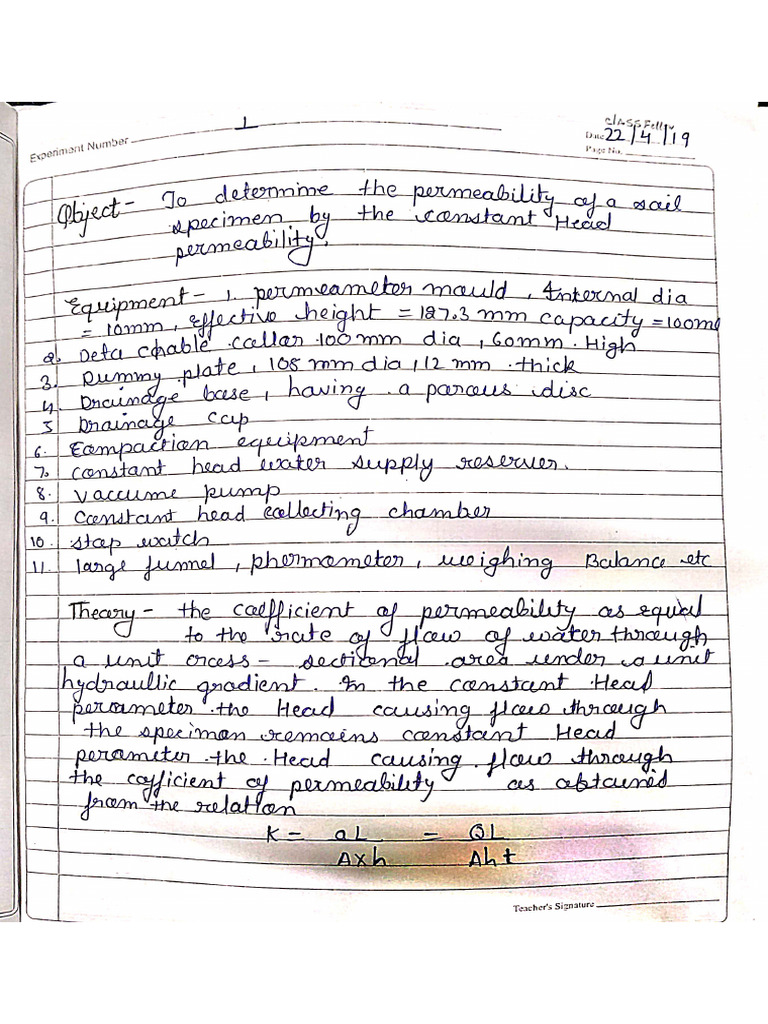 1
classfellow
Experiment Number
Date 22/4/19
Page No.
Object - To determine the permeability of a soil
specimen by the constant Head
permeability.
Equipment - 1. permeameter mould, Internal dia
= 10mm, effective height = 127.3 mm capacity = 100ml
2. Deta chable collar 100 mm dia, 60mm. High
3. Dummy plate, 108 mm dia, 12 mm thick
4. Drainage base, having a porous disc
5 Drainage cap
6. Compaction equipment
7. constant head water supply reserver.
8. vaccume pump
9. Constant head collecting chamber
10. stop watch
11. large funnel, phermometer, weighing Balance etc
Theory - the coefficient of permeability as equal
to the rate of flow of water through
a unit cross - sectional area under a unit
hydraullic gradient. In the constant Head
perameter the Head causing flow through
the specimen remains constant Head
perameter the Head causing flow through
the cofficient of permeability as obtained
from the relation
K = qL = QL
Axh Aht
Teacher's Signature